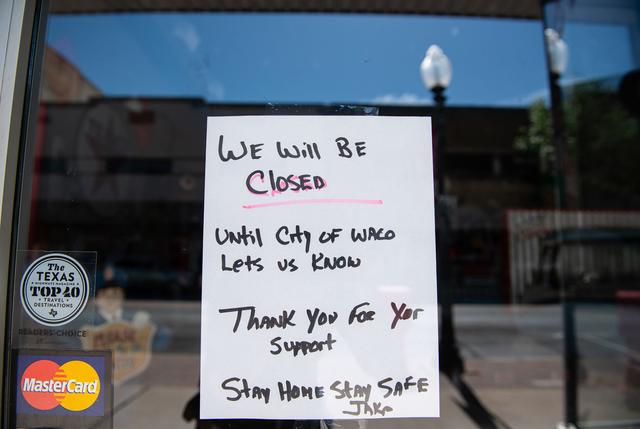 WE Will BE
CLOSED
Until City of WACO
Lets us Know
Thank You For Yor
Support
Stay Home Stay Safe
Jake
The
TEXAS
HIGHWAYS MAGAZINE
TOP 40
TRAVEL
DESTINATIONS
READERS' CHOICE
MasterCard